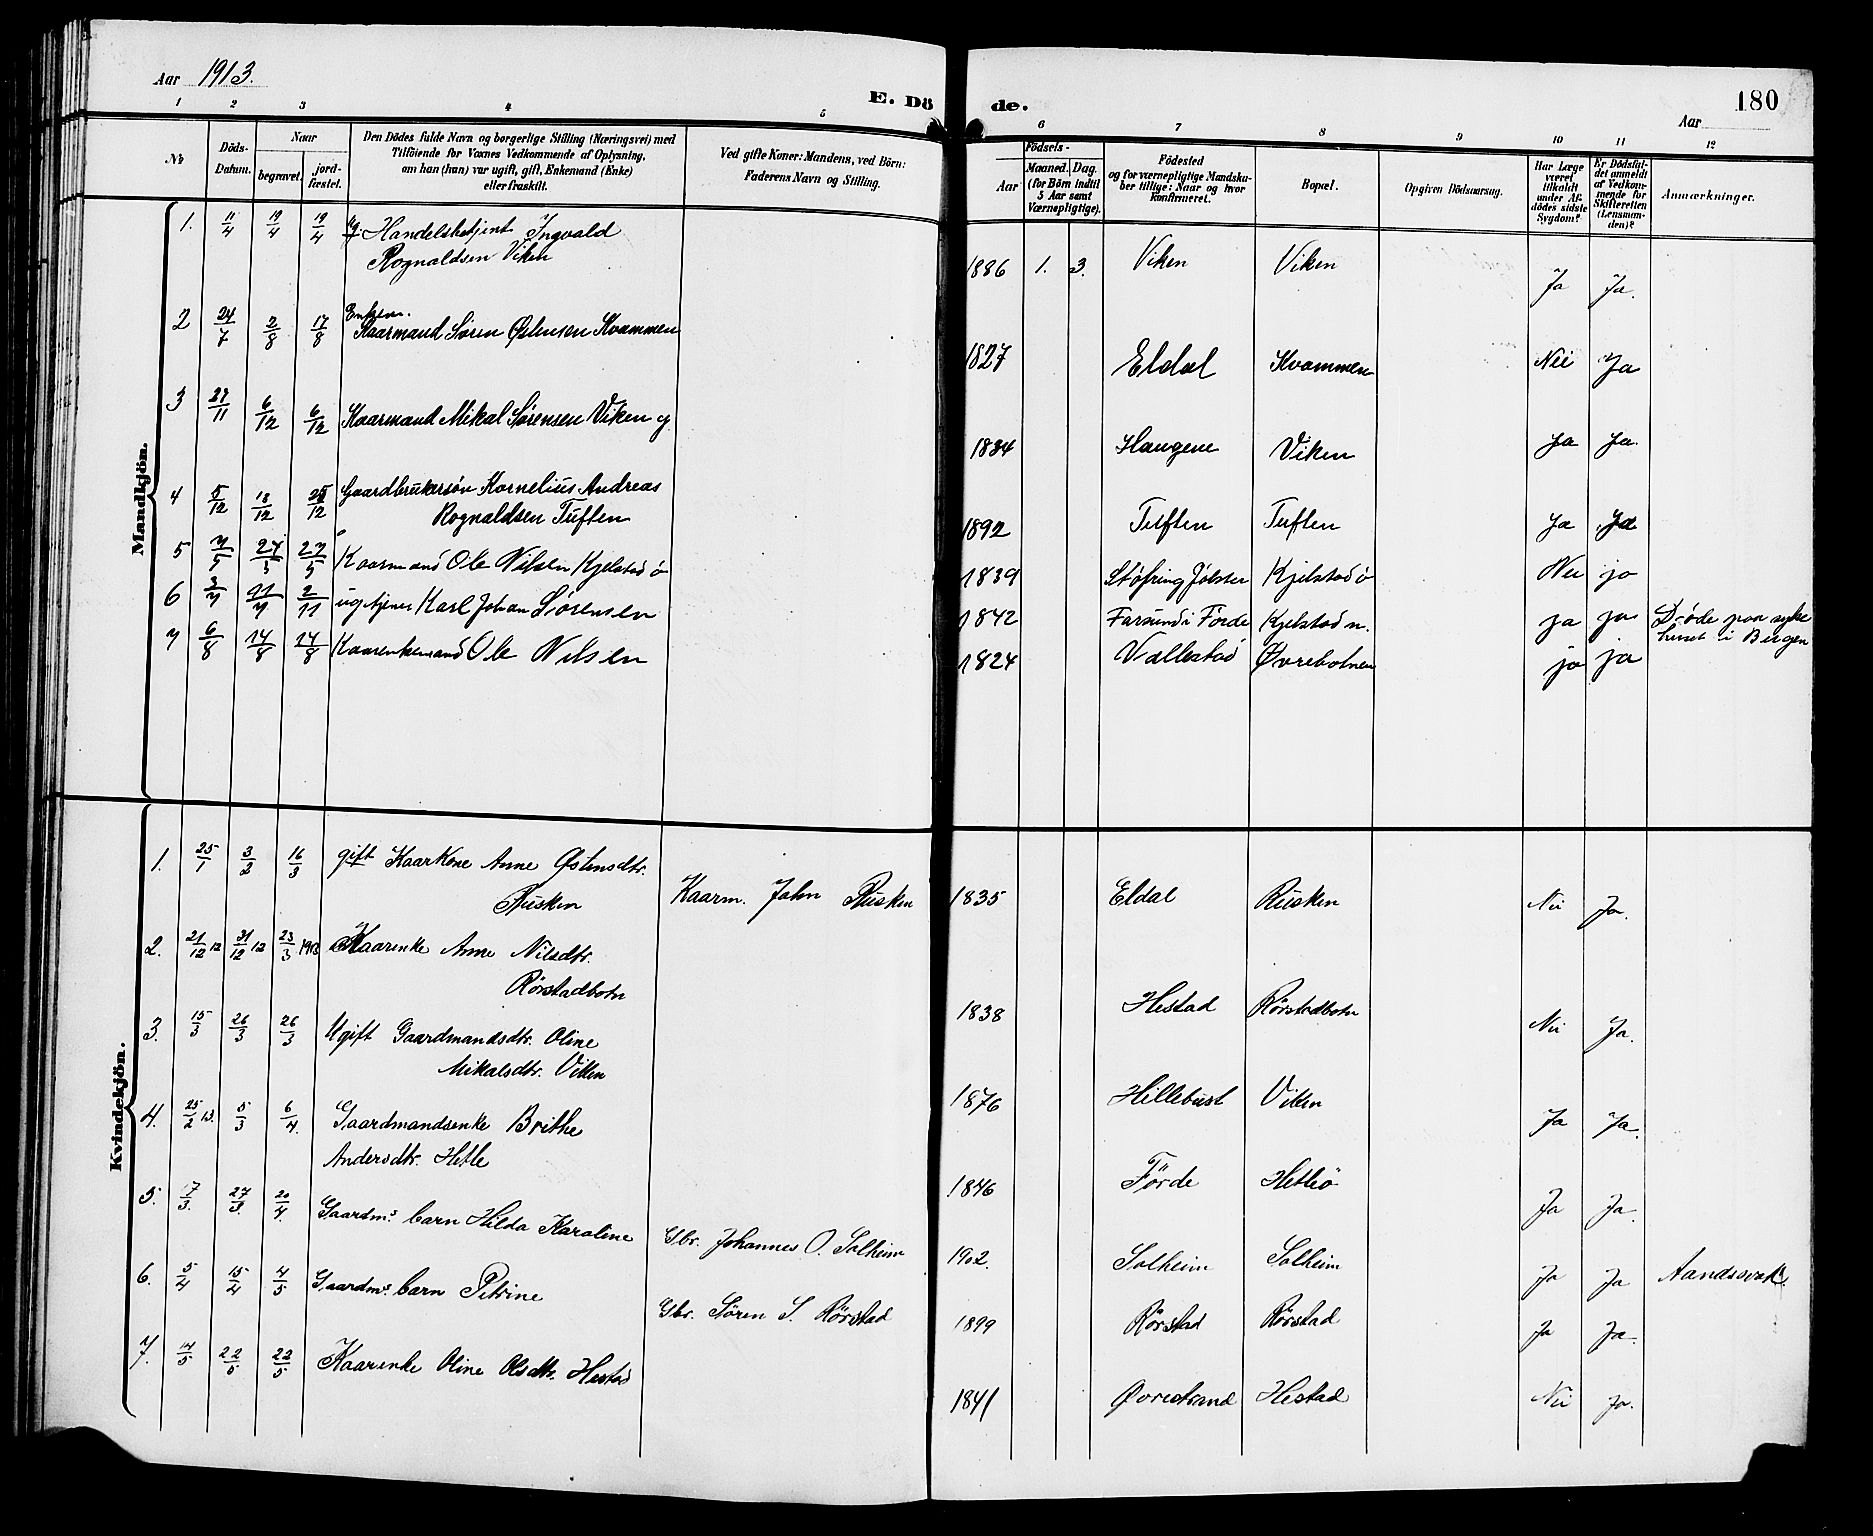 Aar 1913.
E. Dö de.
180
Aar
1 2 3 4 5 6 7 8 9 10 11 12
No
Döds-Datum.
Naar
begravet. jord-fæstet.
Den Dödes fulde Navn og borgerlige Stilling (Næringsvei) med
Tilföiende for Voxnes Vedkommende af Oplysning,
om han (hun) var ugift, gift, Enkemand (Enke)
eller fraskilt.
Ved gifte Koner: Mandens, ved Börn:
Faderens Navn og Stilling.
Födsels-
Aar
Maaned. Dag.
(for Börn indtil
5 Aar samt
Værnepligtige).
Födested
og for værnepligtige Mandsku-
ber tillige: Naar og hvor
konfirmeret.
Bopæl.
Opgiven Dödsaarsag.
Har Læge
været
tilkaldt
under Af-
dödes sidste
Sygdom?
Er Dödsfal-
det anmeldt
af Vedkom-
mende for
Skifteretten
(Lensman-
den)?
Anmærkninger.
Mandkjön.
1. 11/4 19/4 19/4 Ug. Handelsbetjent Ingvald
Rognaldsen Viken 1886 1. 3. Viken Viken Ja Ja.
2 24/7 2/8 17/8 Enkem.
Kaarmand Søren Østensen Kvammen 1827 Eldal Kvammen Nei Ja
3 27/11 6/12 6/12 Kaarmand Mikal Sørensen Viken g. 1834 Haugene Viken Ja Ja.
4 5/12 18/12 25/12 Gaardbrukersøn Kornelius Andreas
Rognaldsen Tuften 1892 Tuften Tuften Ja Ja
5 7/5 27/5 27/5 Kaarmand Ole Nilsen Kjelstad ø 1839 Støfring Jølster Kjelstad ø Nei jo
6 3/7 11/7 2/11 ug tjener Karl Johan Sørensen 1842 Farsund i Förde Kjelstad n. ja ja Døde paa syke
huset i Bergen
7 6/8 14/8 14/8 Kaarenkemand Ole Nilsen 1824 Vallestad Øvrebotnen jo ja
Kvindekjön.
1. 25/1 3/2 16/3 gift Kaarkone Anne Østensdtr.
Rusken Kaarm. John Rusken 1835 Eldal Rusken Nei Ja.
2. 21/12 12 31/12 12 23/3 1913 Kaarenke Anne Nilsdtr.
Rørstadbotn 1838 Hestad Rørstadbotn Nei Ja.
3. 15/3 26/3 26/3 Ugift Gaardmandsdtr. Oline
Mikalsdtr. Viken 1876 Hillebust Viken Ja Ja.
4. 25/2 13. 5/3 6/4. Gaardmandsenke Brithe
Andersdtr. Hetle 1846 Förde Hetleö Ja Ja.
5. 17/3. 27/3. 20/4. Gaardms. barn Hilda Karoline Gbr. Johannes O. Solheim 1902. Solheim Solheim Ja Ja Aandssvak
6. 5/4 15/4 4/5 Gaardms. barn Petrine Gbr. Søren S. Rørstad 1899 Rørstad Rørstad Ja Ja.
7. 14/5 22/5 22/5 Kaarenke Oline Olsdtr. Hestad 1841 Øvrestrand Hestad Nei Ja.